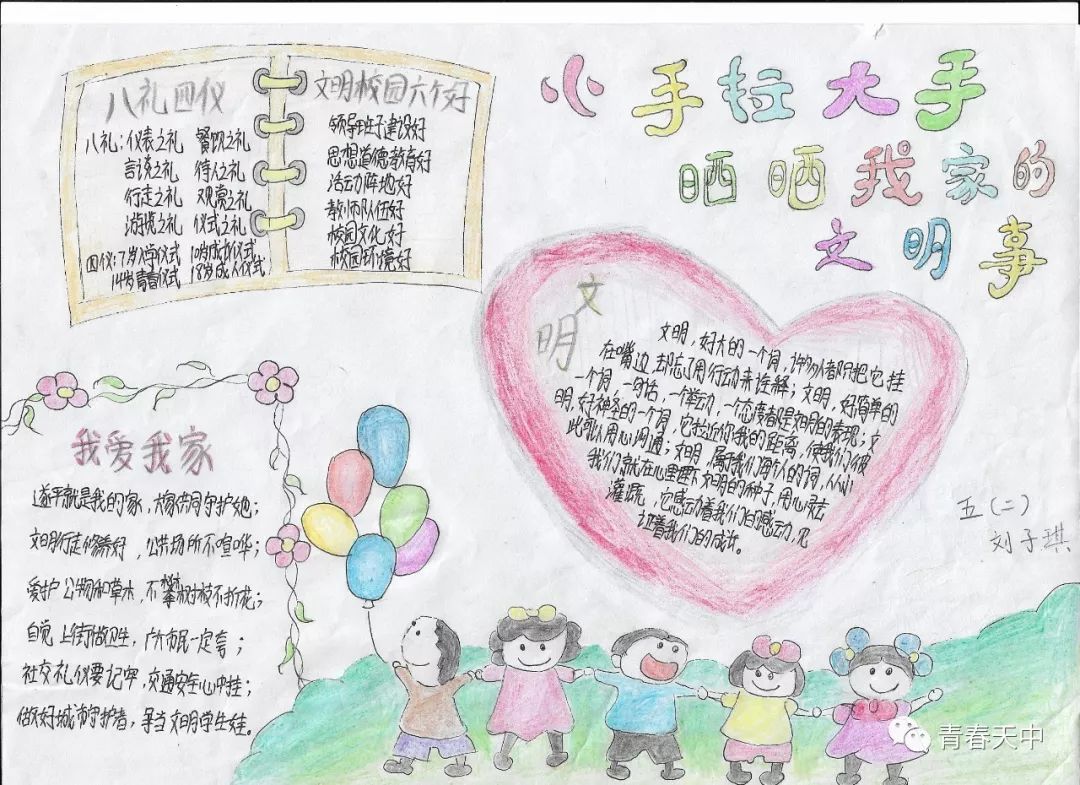 小手拉大手
晒晒我家的
文明事
八礼四仪
八礼:仪表之礼 餐饮之礼
言谈之礼 待人之礼
行走之礼 观赏之礼
游览之礼 仪式之礼
四仪:7岁入学仪式 10岁成长仪式
14岁青春仪式 18岁成人仪式
文明校园六个好
领导班子建设好
思想道德教育好
活动阵地好
教师队伍好
校园文化好
校园环境好
文明
文明,好大的一个词,许多人都只把它挂
在嘴边,却忘了用行动来诠释;文明,好简单的
一个词,一句话,一个举动,一个态度都是文明的表现;文
明,好神圣的一个词,它拉近你我的距离,使我们彼
此可以用心沟通;文明,属于我们每个人的词,从小
我们就在心里埋下文明的种子,用心灵去
灌溉,它感动着我们的感动,见
证着我们的成长。
五(二)
刘子琪
我爱我家
遂平就是我的家,大家共同守护她;
文明行走你我好,公共场所不喧哗;
爱护公物和草木,不攀树枝不折花;
自觉上街做卫生,广大市民一定夸;
社交礼仪要记牢,交通安全心中挂;
做好城市守护者,争当文明学生娃。
青春天中